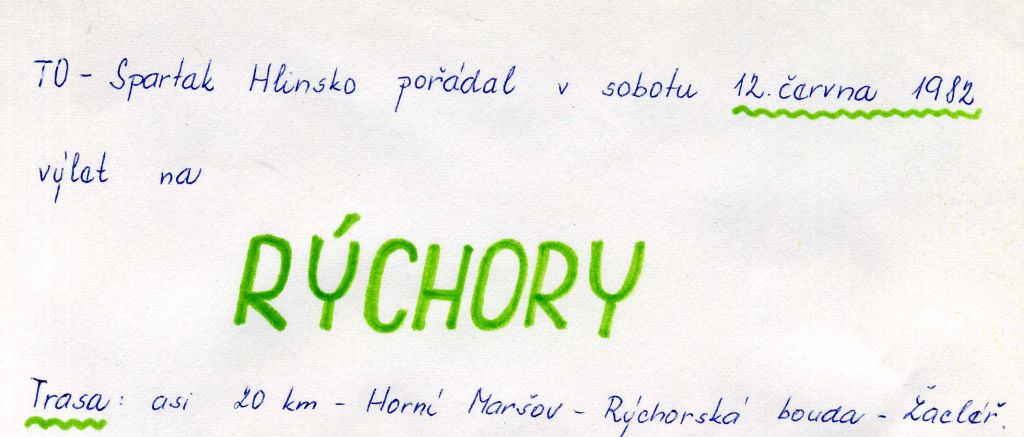 TO - Spartak Hlinsko pořádal v sobotu 12. června 1982
výlet na
RÝCHORY
Trasa: asi 20 km - Horní Maršov - Rýchorská bouda - Žacléř.